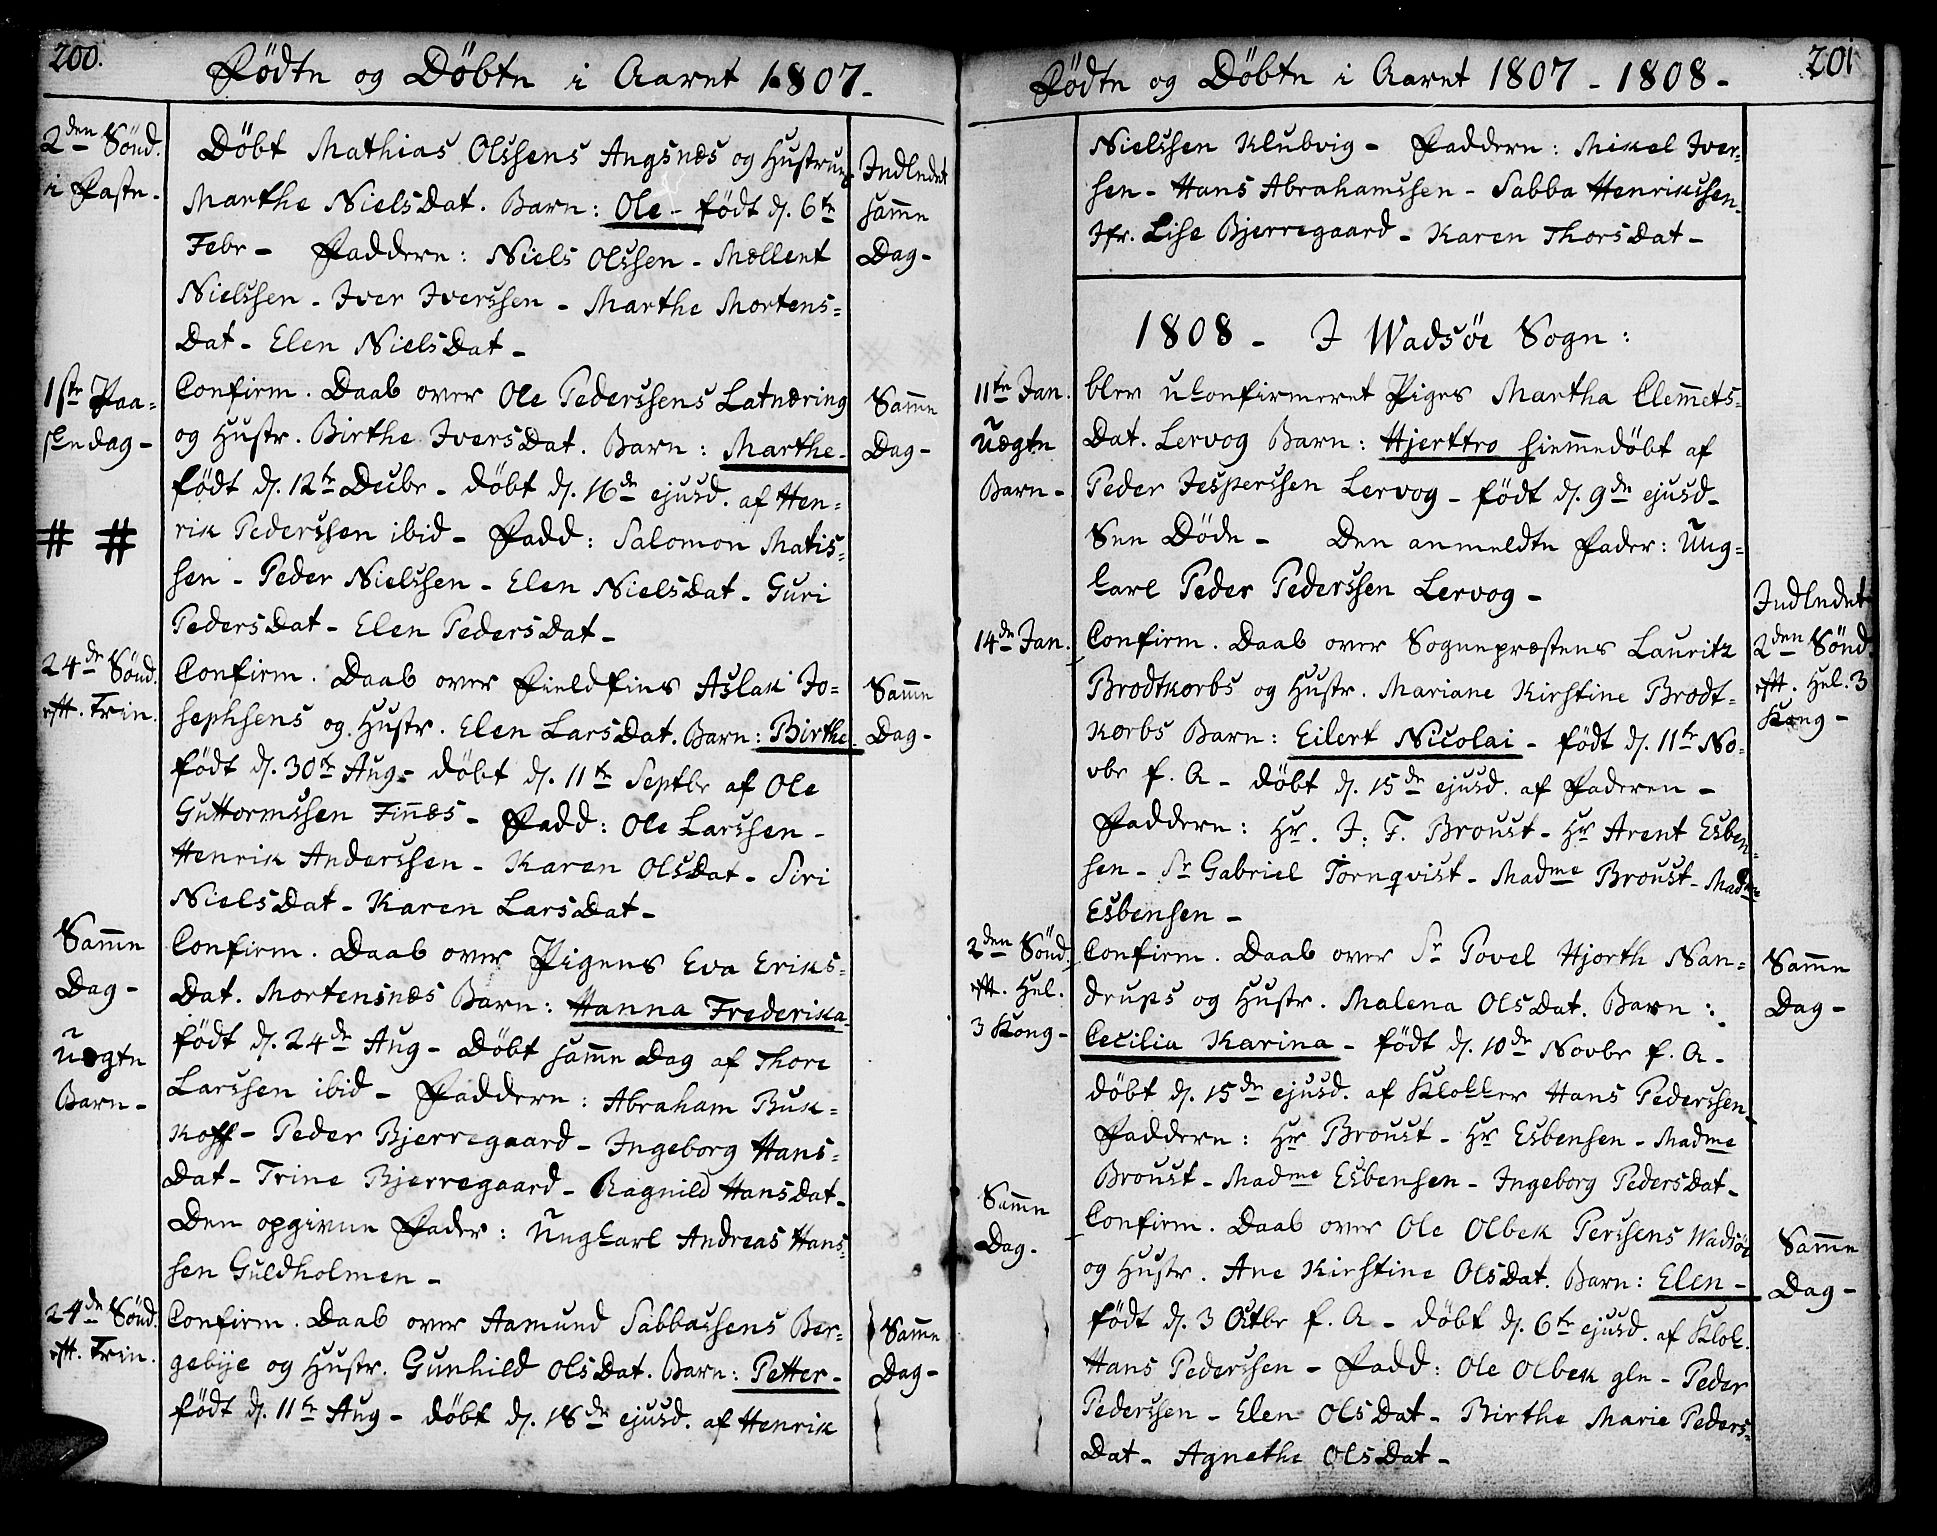 200.
Födte og Döbte i Aaret 1807.
2den Sönd.
i Faste.
Döbt Mathias Olssens Angsnæs og Hustrues
Marthe NielsDat. Barn: Ole - födt d. 6te
Febr - Faddere: Niels Olssen - Mællent
Nielssen - Iver Iverssen - Marthe Mortens=
Dat - Elen NielsDat -
Indledet
samme
Dag -
1ste Paa=
skedag -
# #
Confirm. Daab over Ole Pederssens Latnæring
og Hustr. Birthe IversDat. Barn: Marthe -
födt d. 12te Decbr - döbt d. 16de ejusd. af Hen=
rik Pederssen ibid - Fadd: Salomon Matis=
sen - Peder Nielssen - Elen NielsDat - Guri
PedersDat - Elen PedersDat -
Samme
Dag -
24de Sönd.
eft. Trin.
Confirm. Daab over Fieldfins Aslak Jo=
sephsens og Hustr. Elen LarsDat. Barn: Birthe
födt d. 30te Aug - döbt d. 11te Septbr af Ole
Guttormssen Finnæs - Fadd: Ole Larssen -
Henrik Anderssen - Karen OlsDat - Siri
NielsDat - Karen LarsDat -
Samme
Dag -
Samme
Dag -
Uægte
Barn -
Confirm. Daab over Pigens Eva Eriks=
Dat. Mortensnæs Barn: Hanna Frederika -
födt d. 24de Aug - Döbt samme Dag af Thore
Larssen ibid - Faddere: Abraham Buk=
koff - Peder Bjerregaard - Ingeborg Hans=
Dat - Trine Bjerregaard - Ragnild HansDat -
Den opgivne Fader: Ungkarl Andreas Hans=
sen Guldholmen -
24de Sönd.
eft. Trin.
Confirm. Daab over Aamund Sabbassens Ber=
gebije og Hustr. Gunhild OlsDat. Barn: Petter -
födt d. 11te Aug - döbt d. 18de ejusd. af Henrik
Samme
Dag -
201
Födte og Döbte i Aaret 1807 - 1808 -
Nielssen Klubvig - Faddere: Mikel Iver=
sen - Hans Abrahamssen - Sabba Henrikssen -
Jfr. Lise Bjerregaard - Karen ThorsDat -
1808 - I Wadsöe Sogn:
11te Jan.
Uægte
Barn -
blev ukonfirmeret Piges Martha Clemmets=
Dat. Lervog Barn: Hjerttro hiemmedöbt af
Peder Jesperssen Lervog - födt d. 9de ejusd -
See Döde - Den anmeldte Fader: Ung=
karl Peder Pederssen Lervog -
14de Jan.
Confirm. Daab over Sognepræstens Lauritz
Brodtkorbs og Hustr. Mariane Kirstine Brodt=
korbs Barn: Eilert Nicolai - födt d. 11te No=
vbr f. A - döbt d. 15de ejusd. af Faderen -
Faddere: Hr. J: F. Broust - Hr Arent Esben=
sen - Sr Gabriel Törnqvist - Madme Broust - Madme
Esbensen -
Indledet
2den Sönd
eft. Hel. 3
Kong -
2den Sönd.
eft. Hel.
3 Kong -
Confirm. Daab over Sr Povel Hjorth Nan=
drups og Hustr. Malena OlsDat. Barn:
Cecilia Karina - födt d. 10de Novbr f. A -
döbt d. 15de ejusd. af Klokker Hans Pederssen -
Faddere: Hr Broust - Hr Esbensen - Madme
Broust - Madme Esbensen - Ingeborg PedersDat -
Samme
Dag -
Samme
Dag.
Confirm. Daab over Ole Olbek Perssens Wadsöe
og Hustr. Ane Kirstine OlsDat. Barn: Elen -
födt d. 3 Octbr f. A - döbt d. 6te ejusd. af Klok.
Hans Pederssen - Fadd: Ole Olbek gle - Peder
Pederssen - Elen OlsDat - Birthe Marie Peders=
Dat - Agnethe OlsDat -
Samme
Dag -